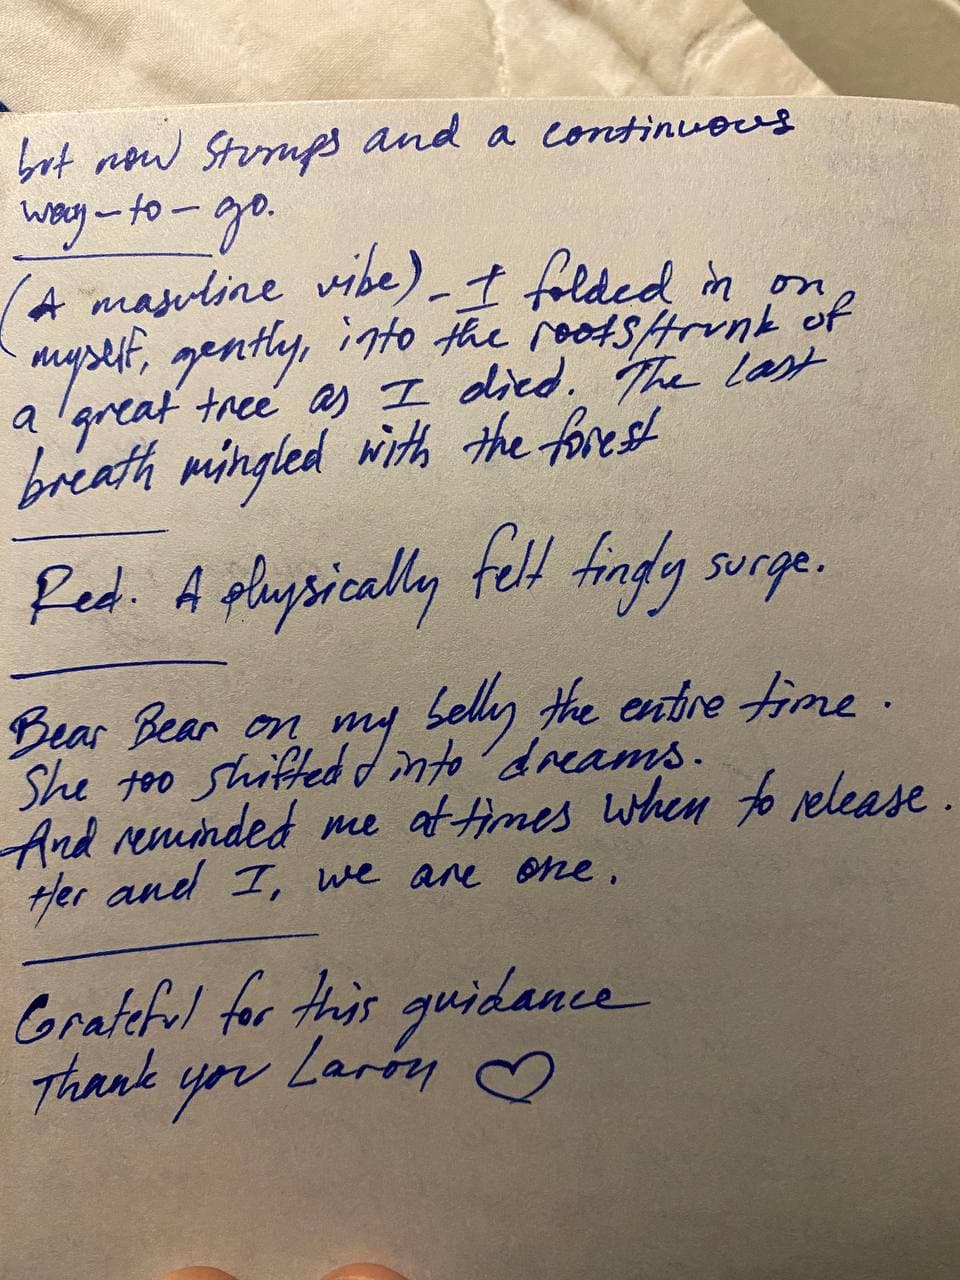 but now stumps and a continuous
way-to-go.
(A masuline vibe) - I folded in on
myself, gently, into the roots/trunk of
a great tree as I died. The last
breath mingled with the forest
Red. A physically felt tingly surge.
Bear Bear on my belly the entire time.
She too shifted into dreams.
And reminded me at times when to release.
Her and I, we are one.
Grateful for this guidance
Thank you Laron ♡